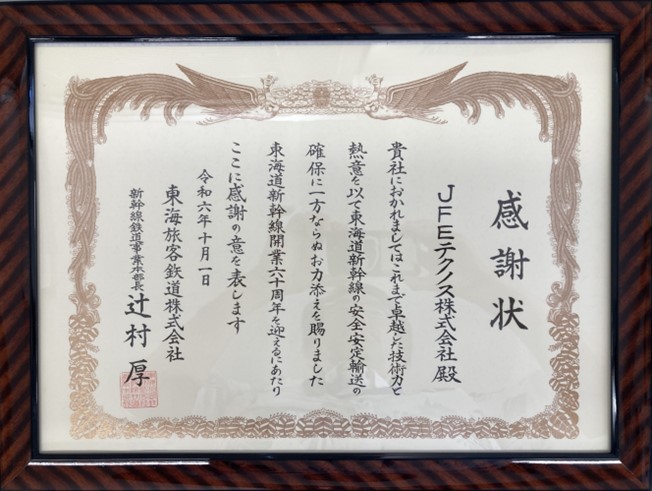 感謝状
JFEテクノス株式会社 殿
貴社におかれましてはこれまで卓越した技術力と
熱意を以て東海道新幹線の安全安定輸送の
確保に一方ならぬお力添えを賜りました
東海道新幹線開業六十周年を迎えるにあたり
ここに感謝の意を表します
令和六年十月一日
東海旅客鉄道株式会社
新幹線鉄道事業本部長 辻村 厚